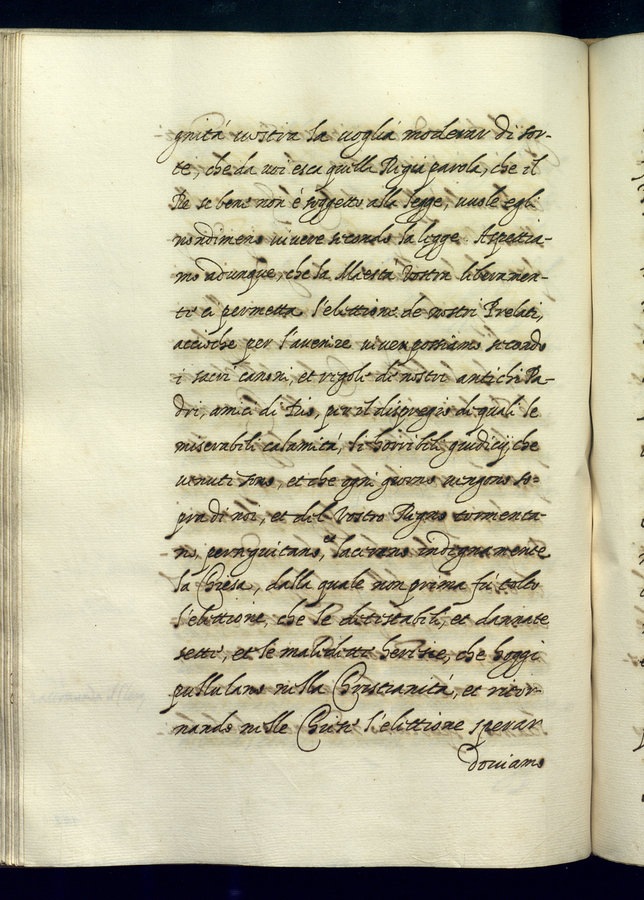 gnitá vostra la voglia moderar di sor-
te, che da voi esca quella Regia parola, che il
Re se bene non é soggetto alla legge, vuole egli
nondimeno vivere secondo la legge. Aspettia-
mo adunque, che la Maestá Vostra liberamen-
te ci permetta l'elettione de nostri Prelati,
accioche per l'avenire viver possiamo secondo
i sacri canoni, et regole de nostri antichi Pa-
dri, amici di Dio, per il dispregio di quali le
miserabili calamitá, li horribili giudicij, che
venuti sono, et che ogni giorno vengono so-
pra di noi, et del Vostro Regno tormenta-
no, perseguitano, et lacerano indegnamente
la Chiesa, dalla quale non prima fu tolta
l'elettione, che le detestabili, et dannate
sette, et le maledette heresie, che hoggi
pullulano nella Christianitá, et ritor-
nando nelle Chiese l'elettione sperar
doviamo